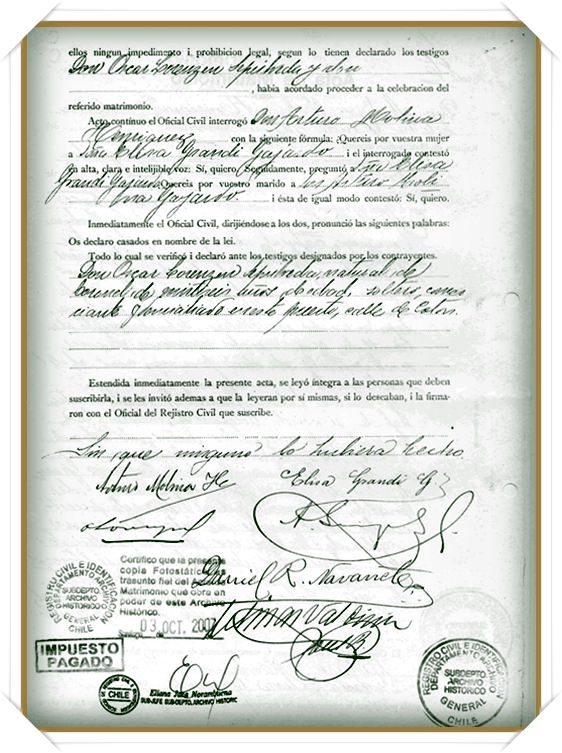 ellos ningun impedimento i prohibicion legal, segun lo tienen declarado los testigos
Don Oscar Lorenzen Sepúlveda y otro
, habia acordado proceder a la celebracion del
referido matrimonio.
Acto contínuo el Oficial Civil interrogó Don Arturo Molina
Henriquez con la siguiente fórmula: ¿Quereis por vuestra mujer
a Doña Elisa Grandi Gajardo i el interrogado contestó
en alta, clara e intelijible voz: Sí, quiero. Seguidamente, preguntó a Doña Elisa
Grandi Gajardo ¿Quereis por vuestro marido a Don Arturo
i ésta de igual modo contestó: Sí, quiero.
Inmediatamente el Oficial Civil, dirijiéndose a los dos, pronunció las siguientes palabras:
Os declaro casados en nombre de la lei.
Todo lo cual se verificó i declaró ante los testigos designados por los contrayentes.
Don Oscar Lorenzen Sepúlveda, natural de
Coronel, de años de edad, soltero, comer
ciante y domiciliado en este puerto, calle de Colon.
Estendida inmediatamente la presente acta, se leyó íntegra a las personas que deben
suscribirla, i se les invitó ademas a que la leyeran por sí mismas, si lo deseaban, i la firma-
ron con el Oficial del Registro Civil que suscribe.
Sin que ninguno lo hubiera hecho
Arturo Molina He Elisa Grandi G
Certifico que la presente
copia Fotostática es
trasunto fiel del
Matrimonio que obra en
poder de este Archivo
Histórico.
03 OCT. 2007
Daniel R. Navarrete
REGISTRO CIVIL E IDENTIFICACION
DEPARTAMENTO ARCHIVO
SUBDEPTO.
ARCHIVO
HISTORICO
GENERAL
CHILE
IMPUESTO
PAGADO
CHILE
Eliana Norambuena
SUB-JEFE SUB-DEPTO. ARCHIVO HISTORIC
REGISTRO CIVIL E
DEPARTAMENTO ARCHIVO
SUBDEPTO.
ARCHIVO
HISTORICO
GENERAL
CHILE